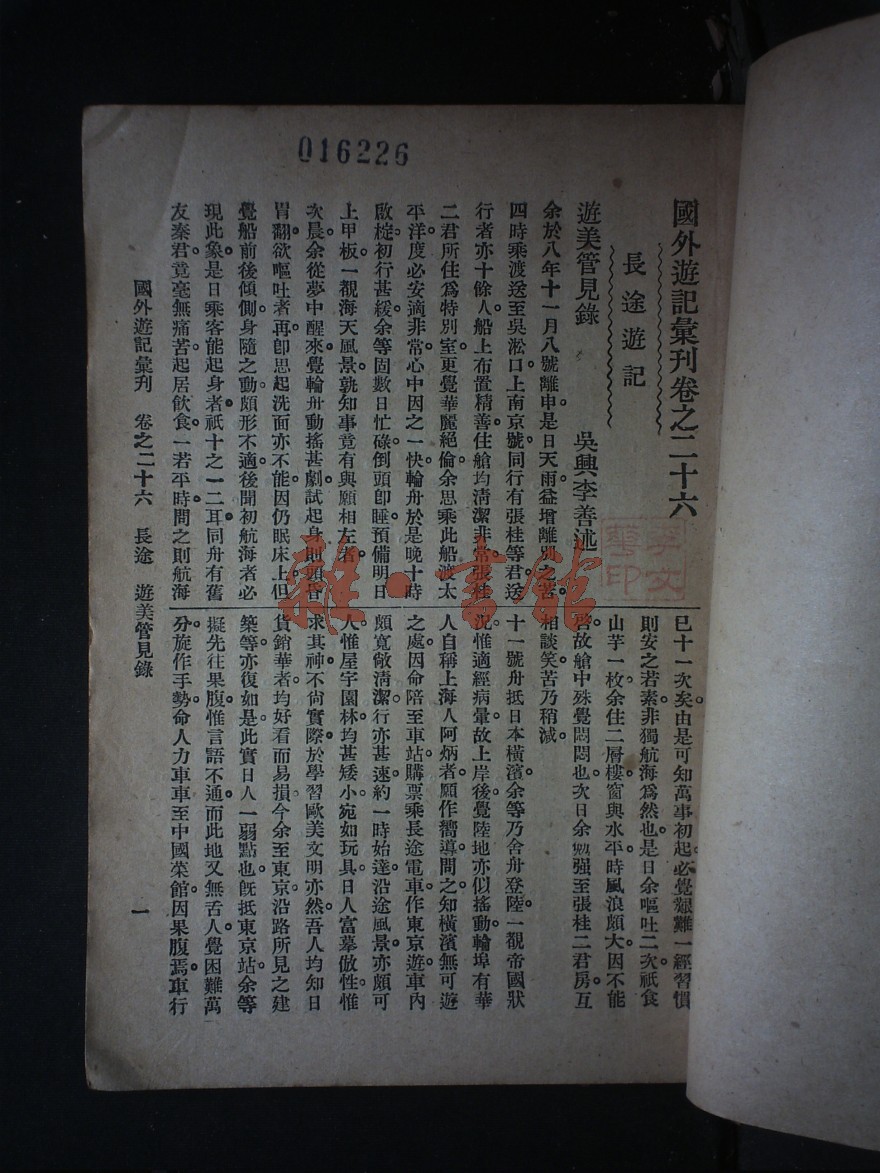 016226
國外遊記彙刊卷之二十六
長途遊記
遊美管見錄 吳興李善述
余於八年十一月八號離申。是日天雨。益增離別之苦。
四時乘渡送至吳淞口。上南京號。同行有張桂等君。送
行者亦十餘人。船上布置精善。住艙均清潔非常。張桂
二君所住爲特別室。更覺華麗絕倫。余思乘此船渡太
平洋。度必安適非常。心中因之一快。輪舟於是晚十時
啟椗。初行甚緩。余等固數日忙碌。倒頭卽睡。預備明日
上甲板。一觀海天風景。孰知事竟有與願相左者。
次晨。余從夢中醒來。覺輪舟動搖甚劇。試起身。則頭昏
胃翻。欲嘔吐者再。卽思起洗面亦不能。因仍眠床上。但
覺船前後傾側。身隨之動。頗形不適。後聞初航海者。必
現此象。是日乘客能起身者。祇十之一二耳。同舟有舊
友秦君。竟毫無痛苦。起居飲食。一若平時。問之則航海
已十一次矣。由是可知萬事初起。必覺艱難。一經習慣
則安之若素。非獨航海爲然也。是日余嘔吐二次。祇食
山芋一枚。余住二層樓。窗與水平。時風浪頗大。因不能
啓。故艙中殊覺悶悶也。次日余勉强至張桂二君房。互
相談笑。苦乃稍減。
十一號舟抵日本橫濱。余等乃舍舟登陸。一觀帝國狀
況。惟適經病暈。故上岸後覺陸地亦似搖動。輪埠有華
人自稱上海人阿炳者。願作嚮導。問之知橫濱無可遊
之處。因命陪至車站。購票乘長途電車。作東京遊。車內
頗寬敞清潔。行亦甚速。約一時始達。沿途風景。亦頗可
人。惟屋宇園林。均甚矮小。宛如玩具。日人富摹倣性。惟
求其神。不尙實際。於學習歐美文明亦然。吾人均知日
貨銷華者。均好看而易損。今余至東京。沿路所見之建
築等。亦復如是。此實日人一弱點也。旣抵東京站。余等
擬先往果腹。惟言語不通。而此地又無舌人。覺困難萬
分。旋作手勢。命人力車車至中國菜館。因果腹焉。車行
國外遊記彙刊 卷之二十六 長途 遊美管見錄 一
雜·書館